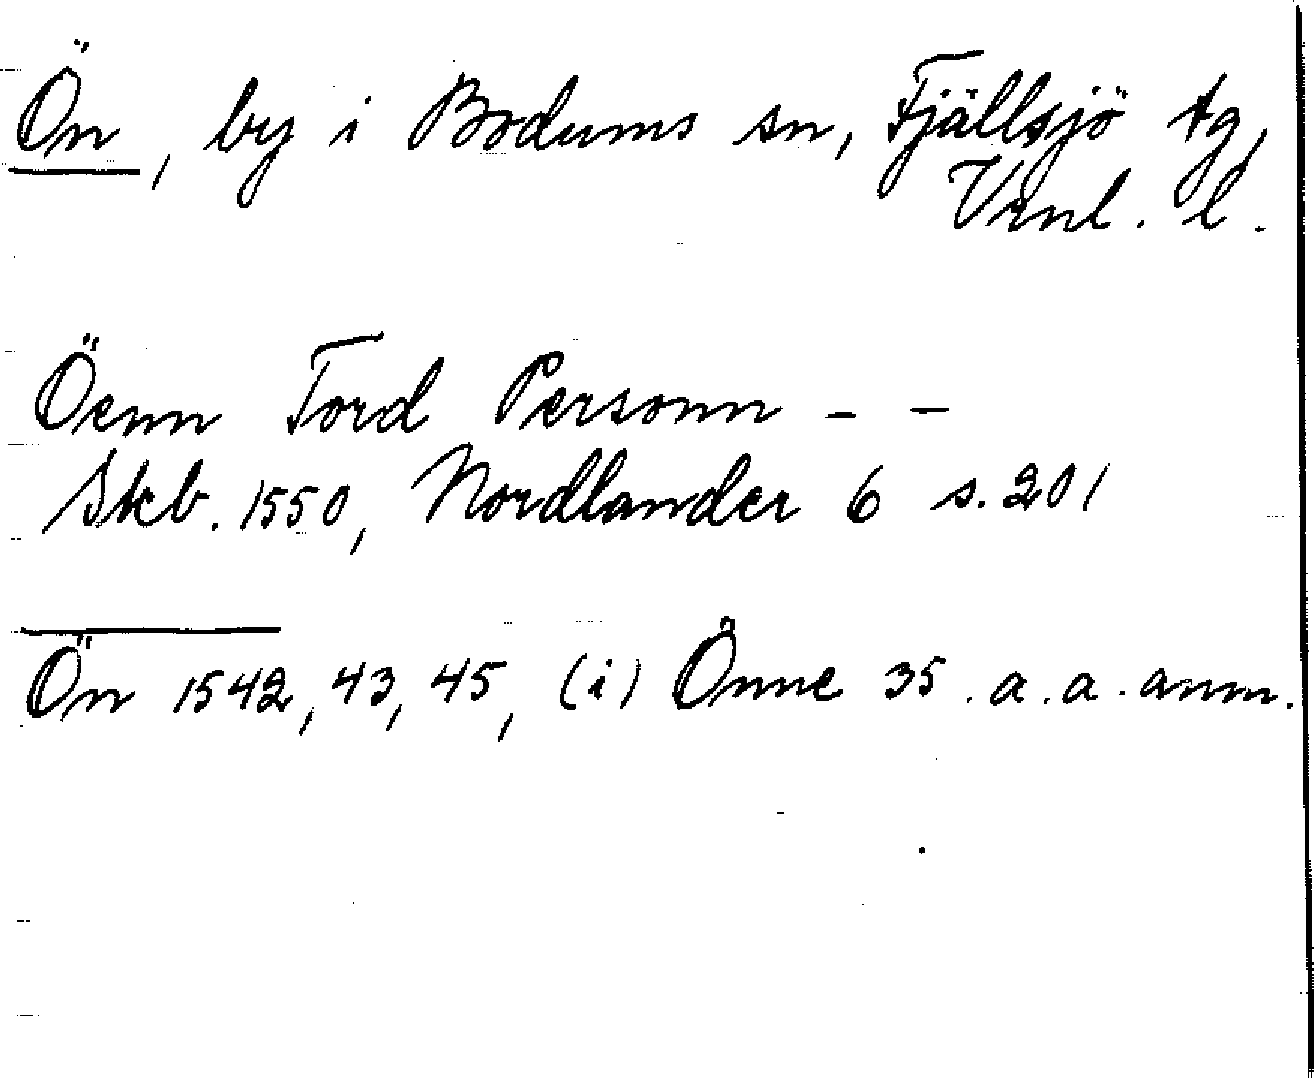 Ön, by i Bodums sn, Fjällsjö tg,
Vrnl. l.
Öenn Tord Personn - -
Skb. 1550, Nordlander 6 s. 201
Ön 1542, 43, 45, (i) Önne 35. a. a. anm.